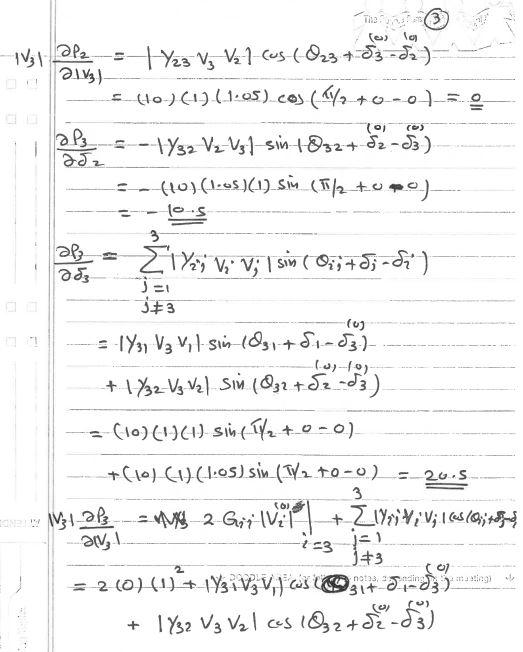 ③
|V3| ∂P2/∂|V3| = |Y23 V3 V2| cos (θ23 + δ3^(0) - δ2^(0))
= (10) (1) (1.05) cos (π/2 + 0 - 0) = 0
∂P3/∂δ2 = - |Y32 V2 V3| sin (θ32 + δ2^(0) - δ3^(0))
= - (10) (1.05) (1) sin (π/2 + 0 - 0)
= - 10.5
∂P3/∂δ3 = Σ_{j=1, j≠3}^{3} |Yij Vi Vj| sin (θij + δj - δi)
= |Y31 V3 V1| sin (θ31 + δ1 - δ3^(0))
+ |Y32 V3 V2| sin (θ32 + δ2^(0) - δ3^(0))
= (10) (1) (1) sin (π/2 + 0 - 0)
+ (10) (1) (1.05) sin (π/2 + 0 - 0) = 20.5
|V3| ∂P3/∂|V3| = 2 Gii |Vi^(0)|^2 |_{i=3} + Σ_{j=1, j≠3}^{3} |Yij Vi Vj| cos (θij + δj - δi
= 2 (0) (1)^2 + |Y31 V3 V1| cos (θ31 + δ1 - δ3^(0))
+ |Y32 V3 V2| cos (θ32 + δ2^(0) - δ3^(0))